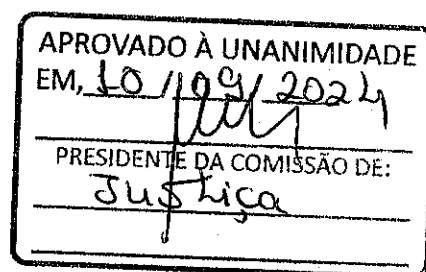 APROVADO À UNANIMIDADE
EM, 10 / 09 / 2024
PRESIDENTE DA COMISSÃO DE:
Justiça